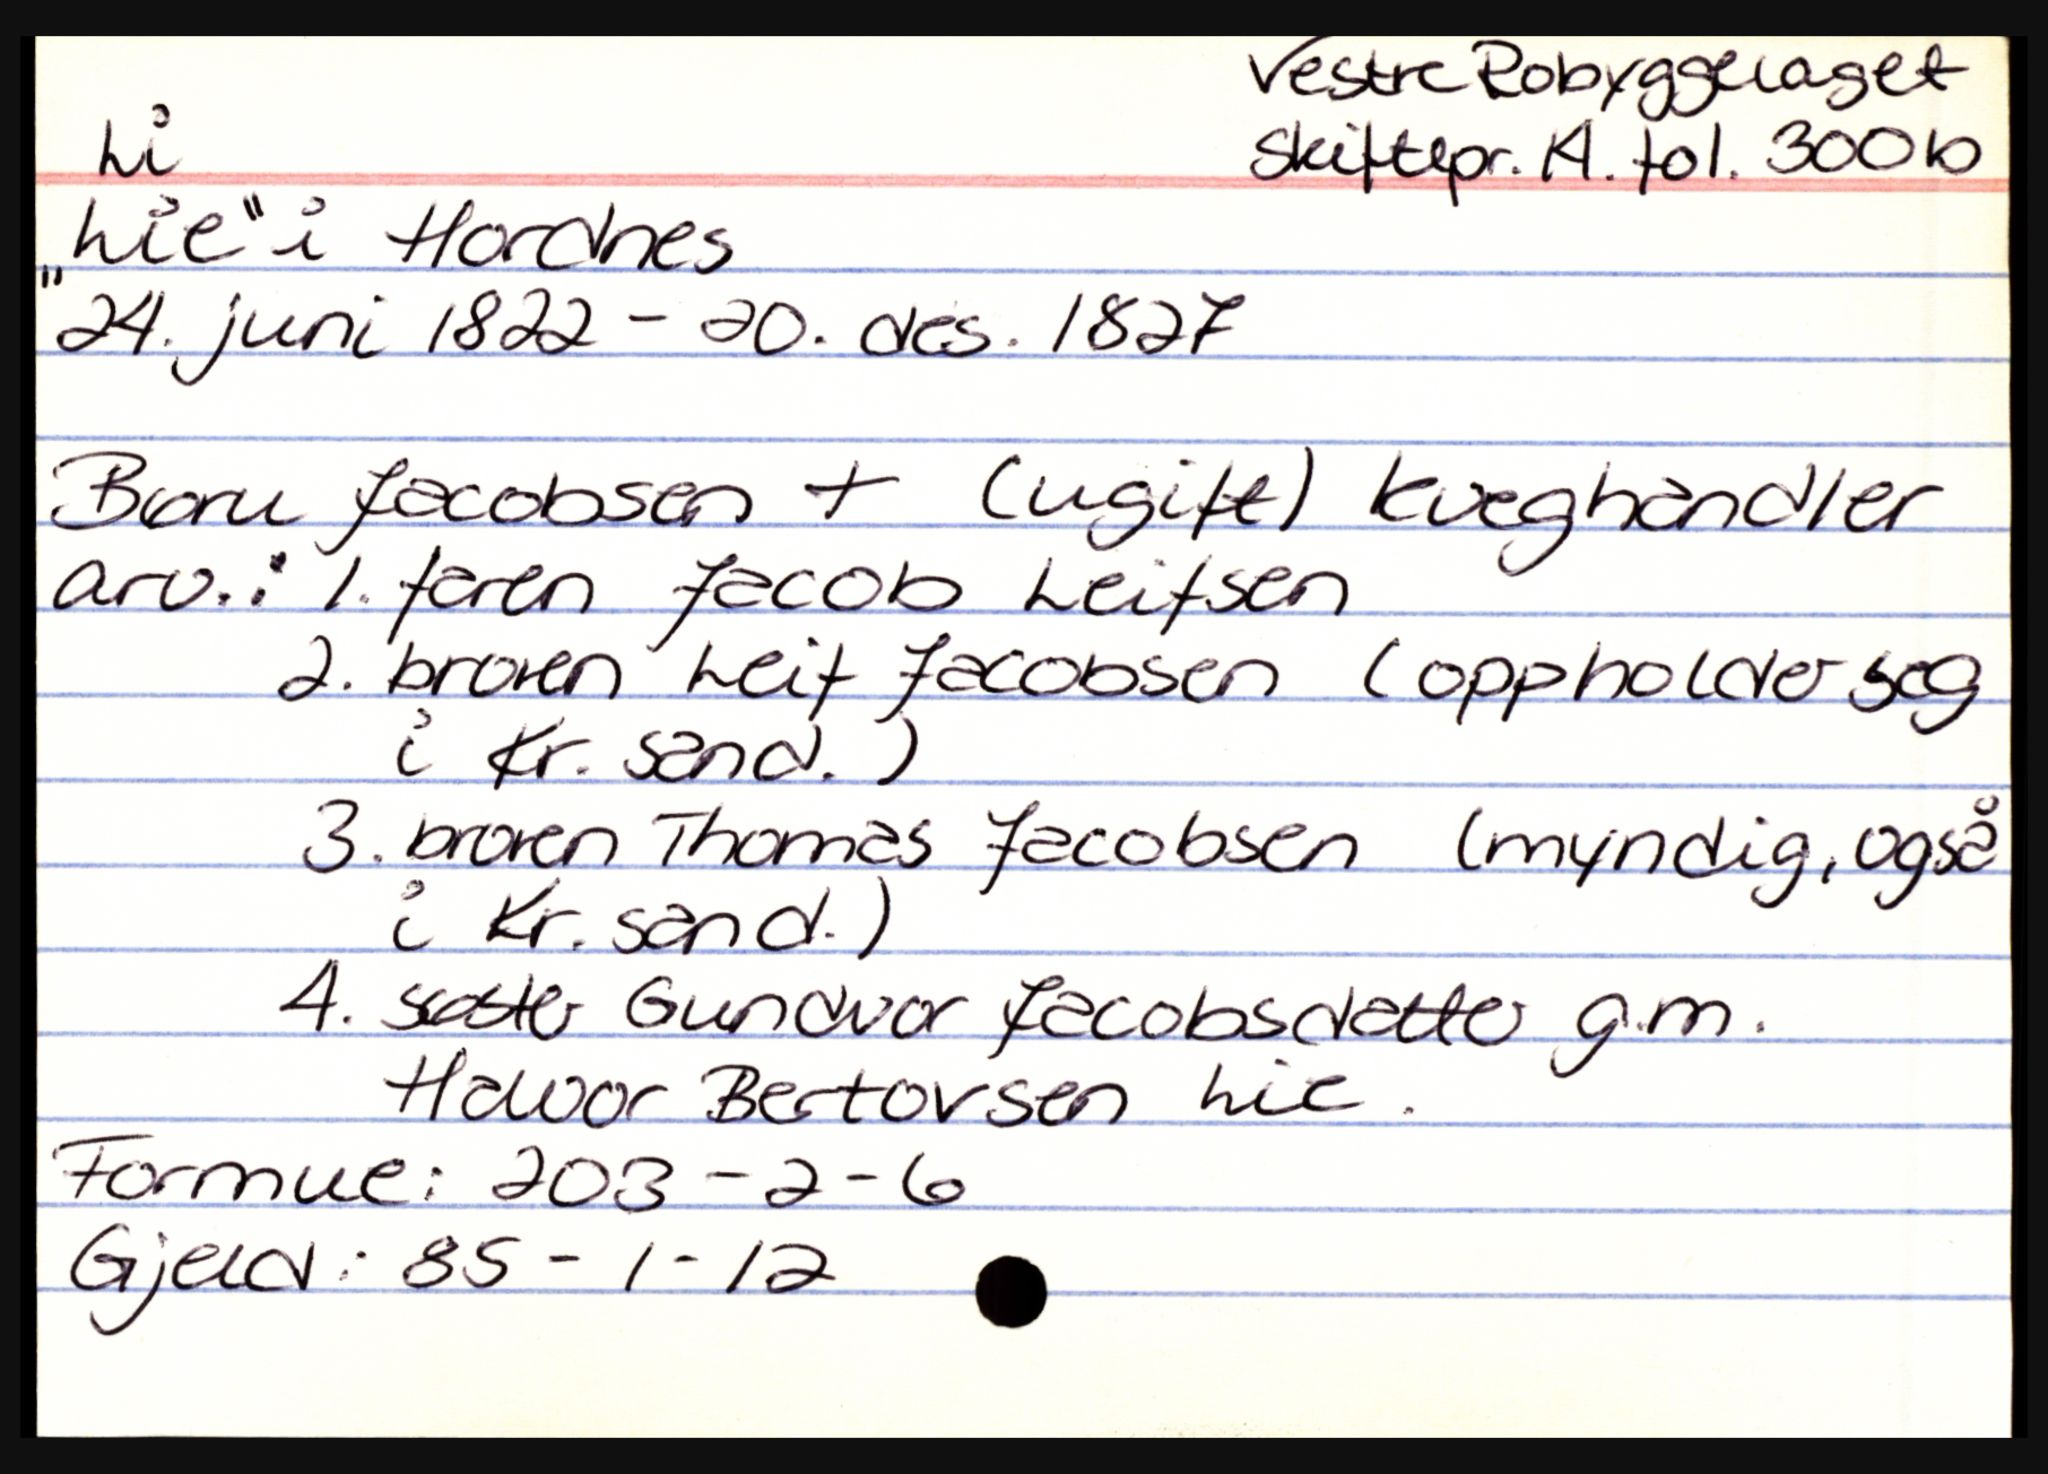 Vestre Robyggelaget
Li
Skiftepr. 14. fol. 300b
„Lie“ i Hordnes
24. juni 1822 - 20. des. 1827
Bioru Jacobsen + (ugift) kveghandler
arv.: 1. faren Jacob Leifsen
2. broren Leif Jacobsen (oppholder seg
i Kr. sand.)
3. broren Thomas Jacobsen (myndig, også
i Kr. sand.)
4. søster Gundvor Jacobsdatter g.m.
Halvor Bertovsen Lie.
Formue: 203 - 2 - 6
Gjeld: 85 - 1 - 12